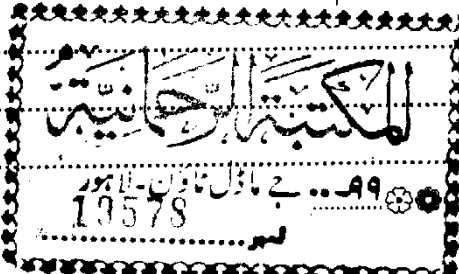 المكتبة الرحمانية
۹۹... جے ماڈل ٹاؤن۔ لاہور
19578
نمبر